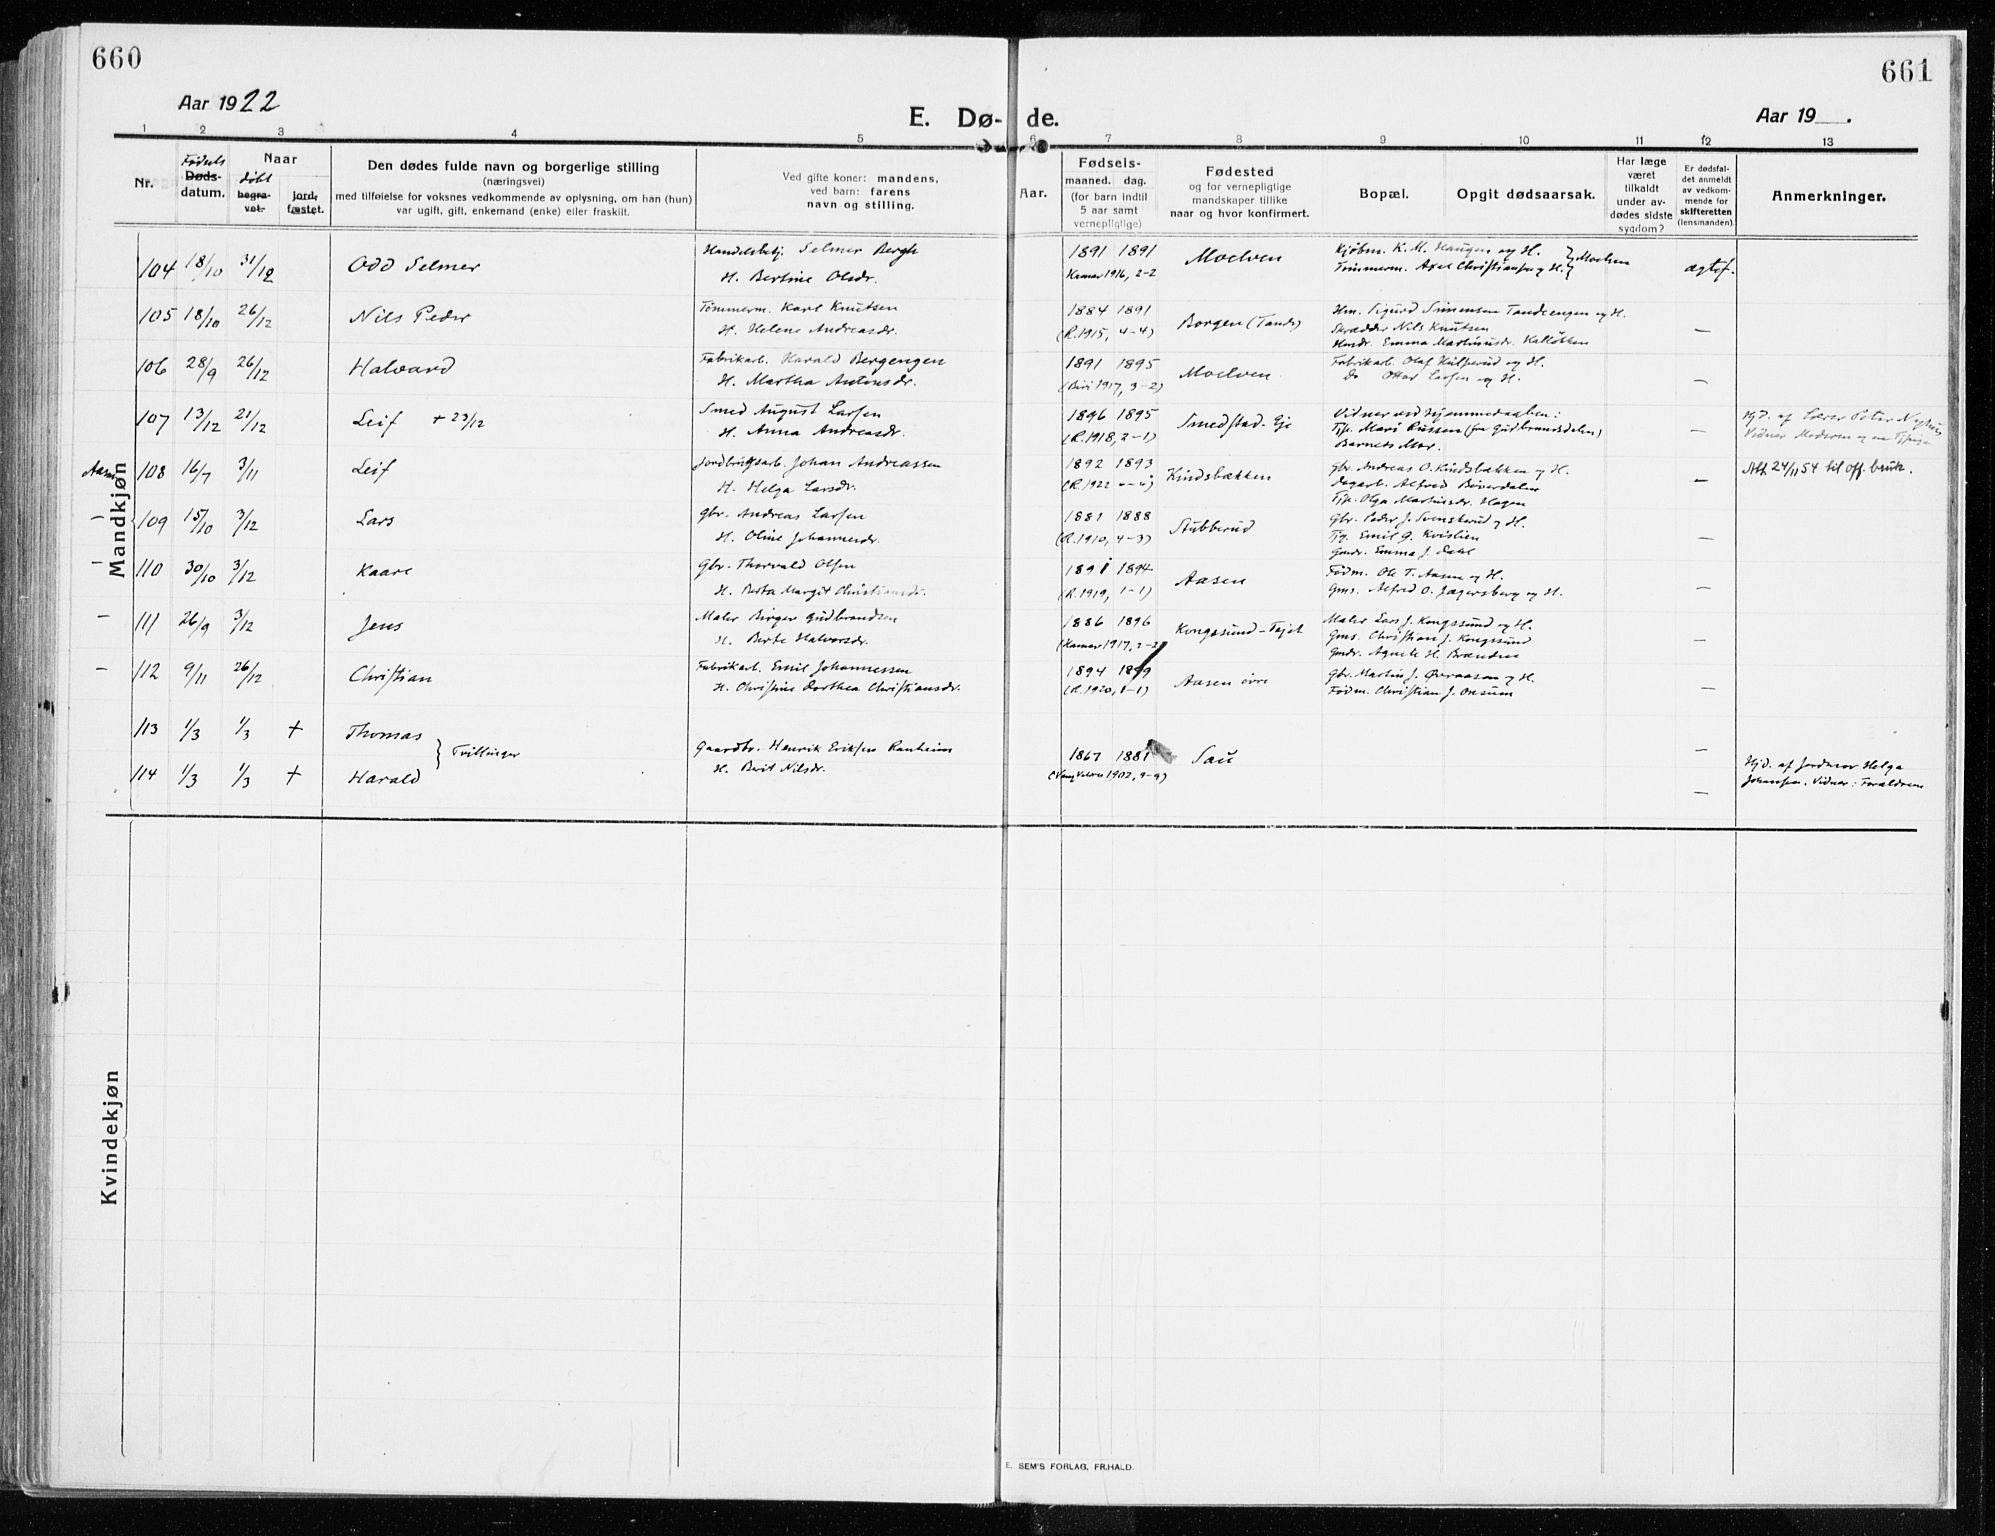 660
661
Aar 1922
E. Dø-
de.
Aar 19
1 2 3 4 5 6 7 8 9 10 11 12 13
Nr.
Fødsels
Døds-
datum.
Naar
døbt
begra-
vet.
jord-
fæstet.
Den dødes fulde navn og borgerlige stilling
(næringsvei)
med tilføielse for voksnes vedkommende av oplysning, om han (hun)
var ugift, gift, enkemand (enke) eller fraskilt.
Ved gifte koner: mandens,
ved barn: farens
navn og stilling.
Aar.
Fødsels-
maaned. dag.
(for barn indtil
5 aar samt
vernepligtige)
Fødested
og for vernepligtige
mandskaper tillike
naar og hvor konfirmert.
Bopæl.
Opgit dødsaarsak.
Har læge
været
tilkaldt
under av-
dødes sidste
sygdom?
Er dødsfal-
det anmeldt
av vedkom-
mende for
skifteretten
(lensmanden)
Anmerkninger.
Mandkjøn
104 18/10 31/12 Odd Selmer
Handelsbetj. Selmer Bergh
H. Bertine Olsdr.
1891 1891
Hamar 1916, 2-2
Moelven
Kjøbm. K. M. Haugen og H.
Tømmerm. Axel Christiansen og H. Moelven
ægtef.
105 18/10 26/12 Nils Peder
Tømmerm. Karl Knutsen
H. Helene Andreasdr.
1884 1891
(R. 1915, 4-4)
Borgen (Tande)
Hm. Sigurd Simensen Tandeengen og H.
Skrædder Nils Knutsen
Emma Martinusdr.
—
106 28/9 26/12 Halvard
Fabrikarb. Harald Bergengen
H. Martha Antonsdr.
1891 1895
(Biri 1917, 3-2)
Moelven
Fabrikarb. Olaf Hulserud og H.
Do Ottar Larsen og H.
—
107 13/12 21/12 Leif + 23/12
Smed August Larsen
H. Anna Andreasdr.
1896 1895
(R. 1918, 2-1)
Smedstad-Eje
Vidner ved hjemmedaaben:
Tjp. Mari Russen (fra Gudbrandsdalen)
Barnets Mor.
—
Hjd. af Lærer Peter Nyhus
Vidner Moderen og en Tjpige
Aasm.
108 16/7 3/11 Leif
Jordbrugsarb. Johan Andreassen
H. Helga Larsdr.
1892 1893
(R. 1922
Kindsbækken
Gbr. Andreas O. Kindsbækken og H.
Dagarb. Alfred Bøverdalen
Tjp. Olga Martinsdr. Hagen
—
Att. 24/11 54 til off. bruk.
— 109 15/10 3/12 Lars
Gbr. Andreas Larsen
H. Oline Johannesdr.
1881 1888
(R. 1910, 4-3)
Stubberud
Gbr. Peder J. Svenskerud og H.
Tjg. Emil G. Kvislien
Gmdr. Emma J. Dahl
—
— 110 30/10 3/12 Kaare
Gbr. Thorvald Olsen
H. Berta Margit Christiansdr.
1891 1894
(R. 1919, 1-1)
Aasen
Fødm. Ole T. Aasen og H.
Gms. Alfred O. Jagersberg og H.
—
— 111 26/9 3/12 Jens
Maler Birger Gudbrandsen
H. Berte Halvorsdr.
1886 1896
(Hamar 1917, 2-2
Kongssund-Fajet
Maler Lars J. Kongssund og H.
Gms. Christian J. Kongssund
Gmdr. Agnete H. Brænden
—
— 112 9/11 26/12 Christian
Fabrikarb. Emil Johannessen
H. Christine Dorthea Christiansdr.
1894 1899
(R. 1920, 1-1)
Aasen øvre
Gbr. Martin J. Øveraasen og H.
Fødm. Christian J. Onsum
—
113 1/3 1/3 + Thomas
Tvillinger
Gaardbr. Henrik Eriksen Ranheim
H. Berit Nilsdr.
1867 1881
(Vang Valdres 1902, 9-9)
Sau
—
114 1/3 1/3 + Harald
—
Hjd. af Jordmor Helga
Johansen. Vidner: Forældrene
Kvindekjøn
E. SEM'S FORLAG, FR.HALD.